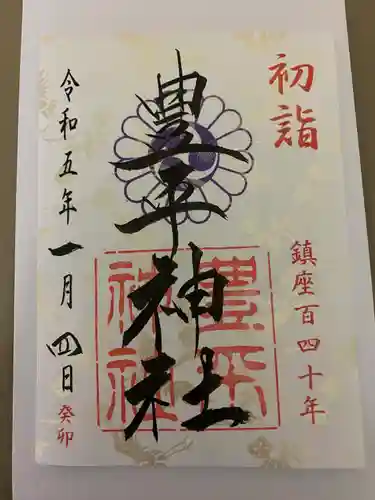 初詣
鎮座百四十年
豊平神社
豊平
神社
令和五年一月四日
癸卯